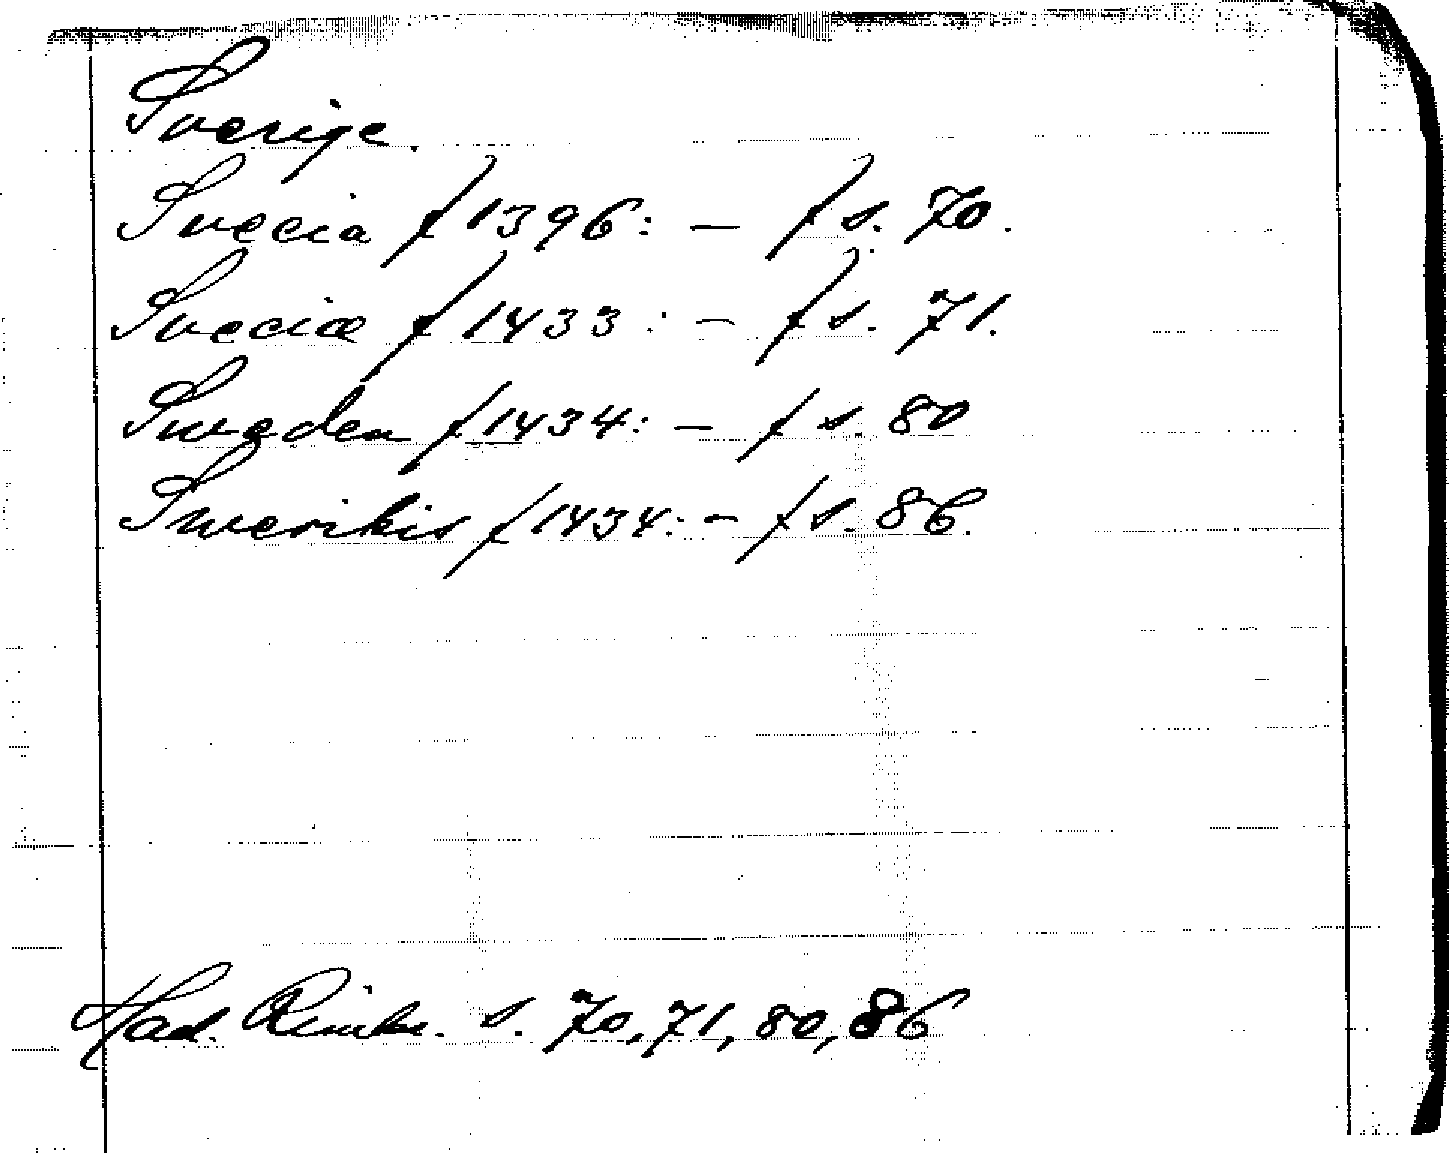 Sverige.
Suecia f 1396: — f s. 70.
Sueciæ f 1433: — f s. 71.
Sweden f 1434: — f s. 80
Swerikis f 1434: — f s. 86.
Had. s. 70, 71, 80, 86